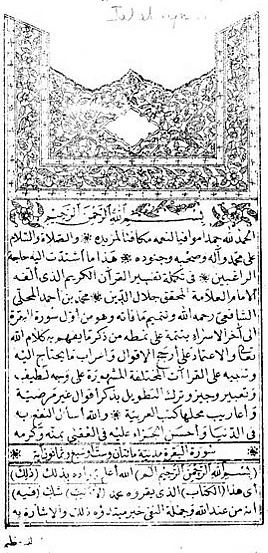 Jalalayn
بسم الله الرحمن الرحيم
الحمد لله حمدا موافيا لنعمه مكافئا لمزيده * والصلاة والسلام
على محمد وآله وصحبه وجنوده * هذا ما اشتدت اليه حاجة
الراغبين * في تكملة تفسير القرآن الكريم الذى ألفه
الامام العلامة المحقق جلال الدين * محمد بن أحمد المحلى
الشافعى رحمه الله وتتميم ما فاته وهو من أول سورة البقرة
الى آخر الاسراء بتتمة على نمطه من ذكر ما يفهم به كلام الله
تعالى والاعتماد على أرجح الاقوال واعراب ما يحتاج اليه
وتنبيه على القراآت المختلفة المشهورة على وجه لطيف
وتعبير وجيز وترك التطويل بذكر أقوال غير مرضية
وأعاريب محلها كتب العربية * والله أسأل النفع به
فى الدنيا وأحسن الجزاء عليه فى العقبى بمنه وكرمه
* سورة البقرة مدنية مائتان وست أو سبع وثمانون آية *
(بسم الله الرحمن الرحيم الم) الله أعلم بمراده بذلك (ذلك)
أى هذا (الكتاب) الذى يقرؤه محمد (لا ريب) شك (فيه)
أنه من عند الله وجملة النفى خبر مبتدؤه ذلك والاشارة به